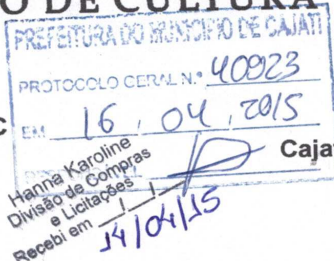 O DE CULTURA
PREFEITURA DO MUNICÍPIO DE CAJATI
PROTOCOLO GERAL N.º 40923
C
EM 16 , 04 , 2015
Cajat
Hanna Karoline
Divisão de Compras
e Licitações
Recebi em __/__/__
14/04/15